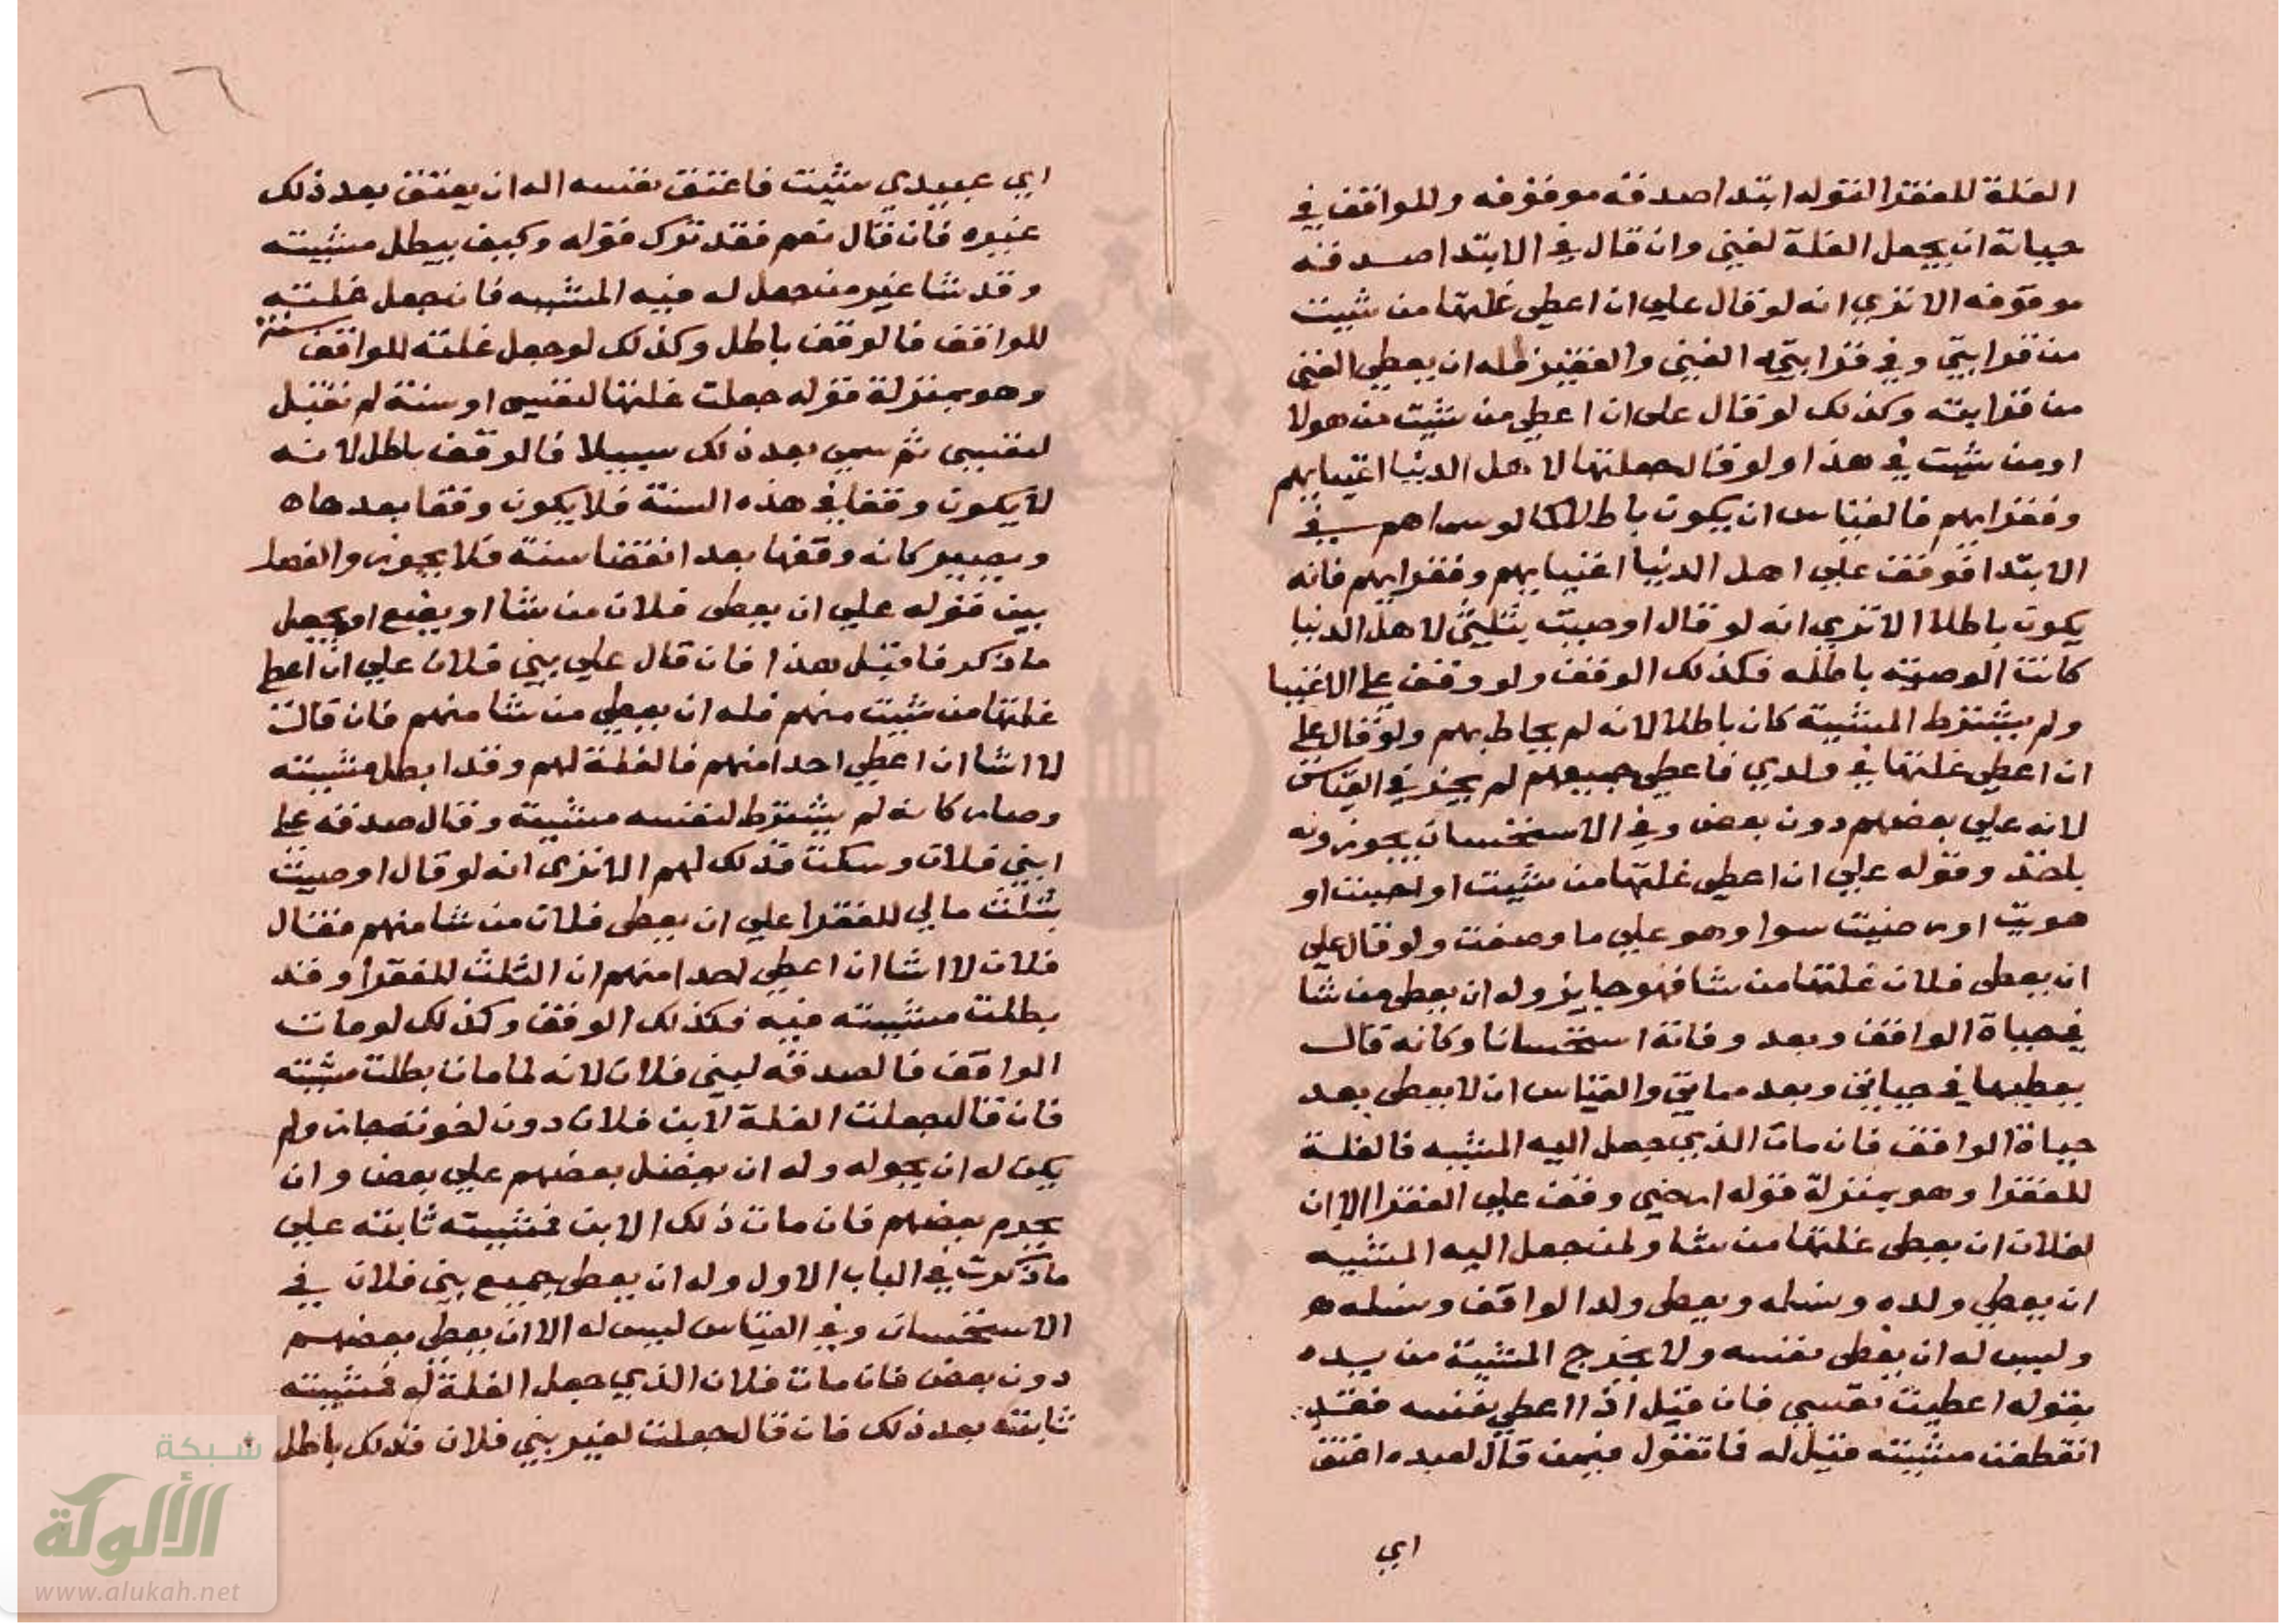 الغلة للفقرا لقوله ابتدا صدقه موقوفه وللواقف في
حياته ان يجعل الغلة لغني وان قال في الابتدا صدقه
موقوفه الا تري انه لو قال علي ان اعطي غلتها من شيت
من قرابتي وفي قرابته الغني والفقير فله ان يعطي الغني
من قرابته وكذلك لو قال علي ان اعطي من شيت من هولا
او من شيت في هذا ولو قال جعلتها لاهل الدنيا اغنيايهم
وفقرايهم فالقياس ان يكون باطلا كما لو سماهم في
الابتدا فوقف علي اهل الدنيا اغنيايهم وفقرايهم فانه
يكون باطلا الا تري انه لو قال اوصيت بثلثي لاهل الدنيا
كانت الوصيه باطله فكذلك الوقف ولو وقف علي الاغنيا
ولم يشترط المشيية كان باطلا لانه لم يحاط بهم ولو قال علي
ان اعطي غلتها في ولدي فاعطي جميعهم لم يجز في القياس
لانه علي بعضهم دون بعض وفي الاستحسان يجوز ونه
ياخذ وقوله علي ان اعطي غلتها من شيت او احببت او
هويت او رضيت سوا وهو علي ما وصفت ولو قال علي
ان يعطي فلان غلتها من شا فهو جايز وله ان يعطي من شا
في حياة الواقف وبعد وفاتة استحسانا وكانه قال
يعطيها في حياتي وبعد مماتي والقياس ان لا يعطي بعد
حياة الواقف فان مات الذي جعل اليه المشيه فالغلة
للفقرا وهو بمنزلة قوله ارضي وقف علي الفقرا الا ان
لفلان ان يعطي غلتها من شا ولمن جعل اليه المشيه
ان يعطي ولده ونسله ويعطي ولد الواقف ونسله
وليس له ان يعطي نفسه ولا يخرج المشية من يده
بقوله اعطيت نفسي فان قيل اذا اعطي نفسه فقد
انقطعت مشيته قيل له فاتقول فيمن قال لعبده اعتق
اي
٦٦
اي عبيدي شيت فاعتق نفسه اله ان يعتق بعد ذلك
غيره فان قال نعم فقد ترك قوله وكيف يبطل مشيته
وقد شا غير من جعل له فيه المشييه فان جعل غلته
للواقف فالوقف باطل وكذلك لو جعل غلته للواقف سنة
وهو بمنزلة قوله جعلت غلتها لنفسي او سنة لم تقبل
لنفسي ثم سمي بعد ذلك سبيلا فالوقف باطل لانه
لا يكون وقفا في هذه السنة فلا يكون وقفا بعدها
ويصير كانه وقفها بعد انقضا سنة فلا يجوز والفصل
بين قوله علي ان يعطي فلان من شا او يضع او يجعل
ما ذكر فا قبل هذا فان قال علي بني فلان علي ان اعطي
غلتها من شيت منهم فله ان يعطي من شا منهم فان قالت
لا اشا ان اعطي احدا منهم فالغلة لهم وقد ابطل مشييته
وصار كانه لم يشترط لنفسه مشيية وقال صدقه علي
ابني فلان وسكت فذلك لهم الا تري انه لو قال اوصيت
بثلث مالي للفقرا علي ان يعطي فلان من شا منهم فقال
فلان لا اشا ان اعطي احدا منهم ان الثلث للفقرا وقد
بطلت مشييته فيه فكذلك الوقف وكذلك لو مات
الواقف فالصدقه لبني فلان لانه لما مات بطلت مشيته
فان قال جعلت الغلة لابن فلان دون اخوته جاز ولم
يكن له ان يحوله وله ان يفضل بعضهم علي بعض وان
يحرم بعضهم فان مات ذلك الابن فمشييته ثابته علي
ما ذكرت في الباب الاول وله ان يعطي جميع بني فلان في
الاستحسان وفي القياس ليس له الا ان يعطي بعضهم
دون بعض فان مات فلان الذي جعل الغلة له فمشييته
ثابته بعد ذلك فان قال جعلت لغير بني فلان فذلك باطل
شبكة
الألوكة
www.alukah.net